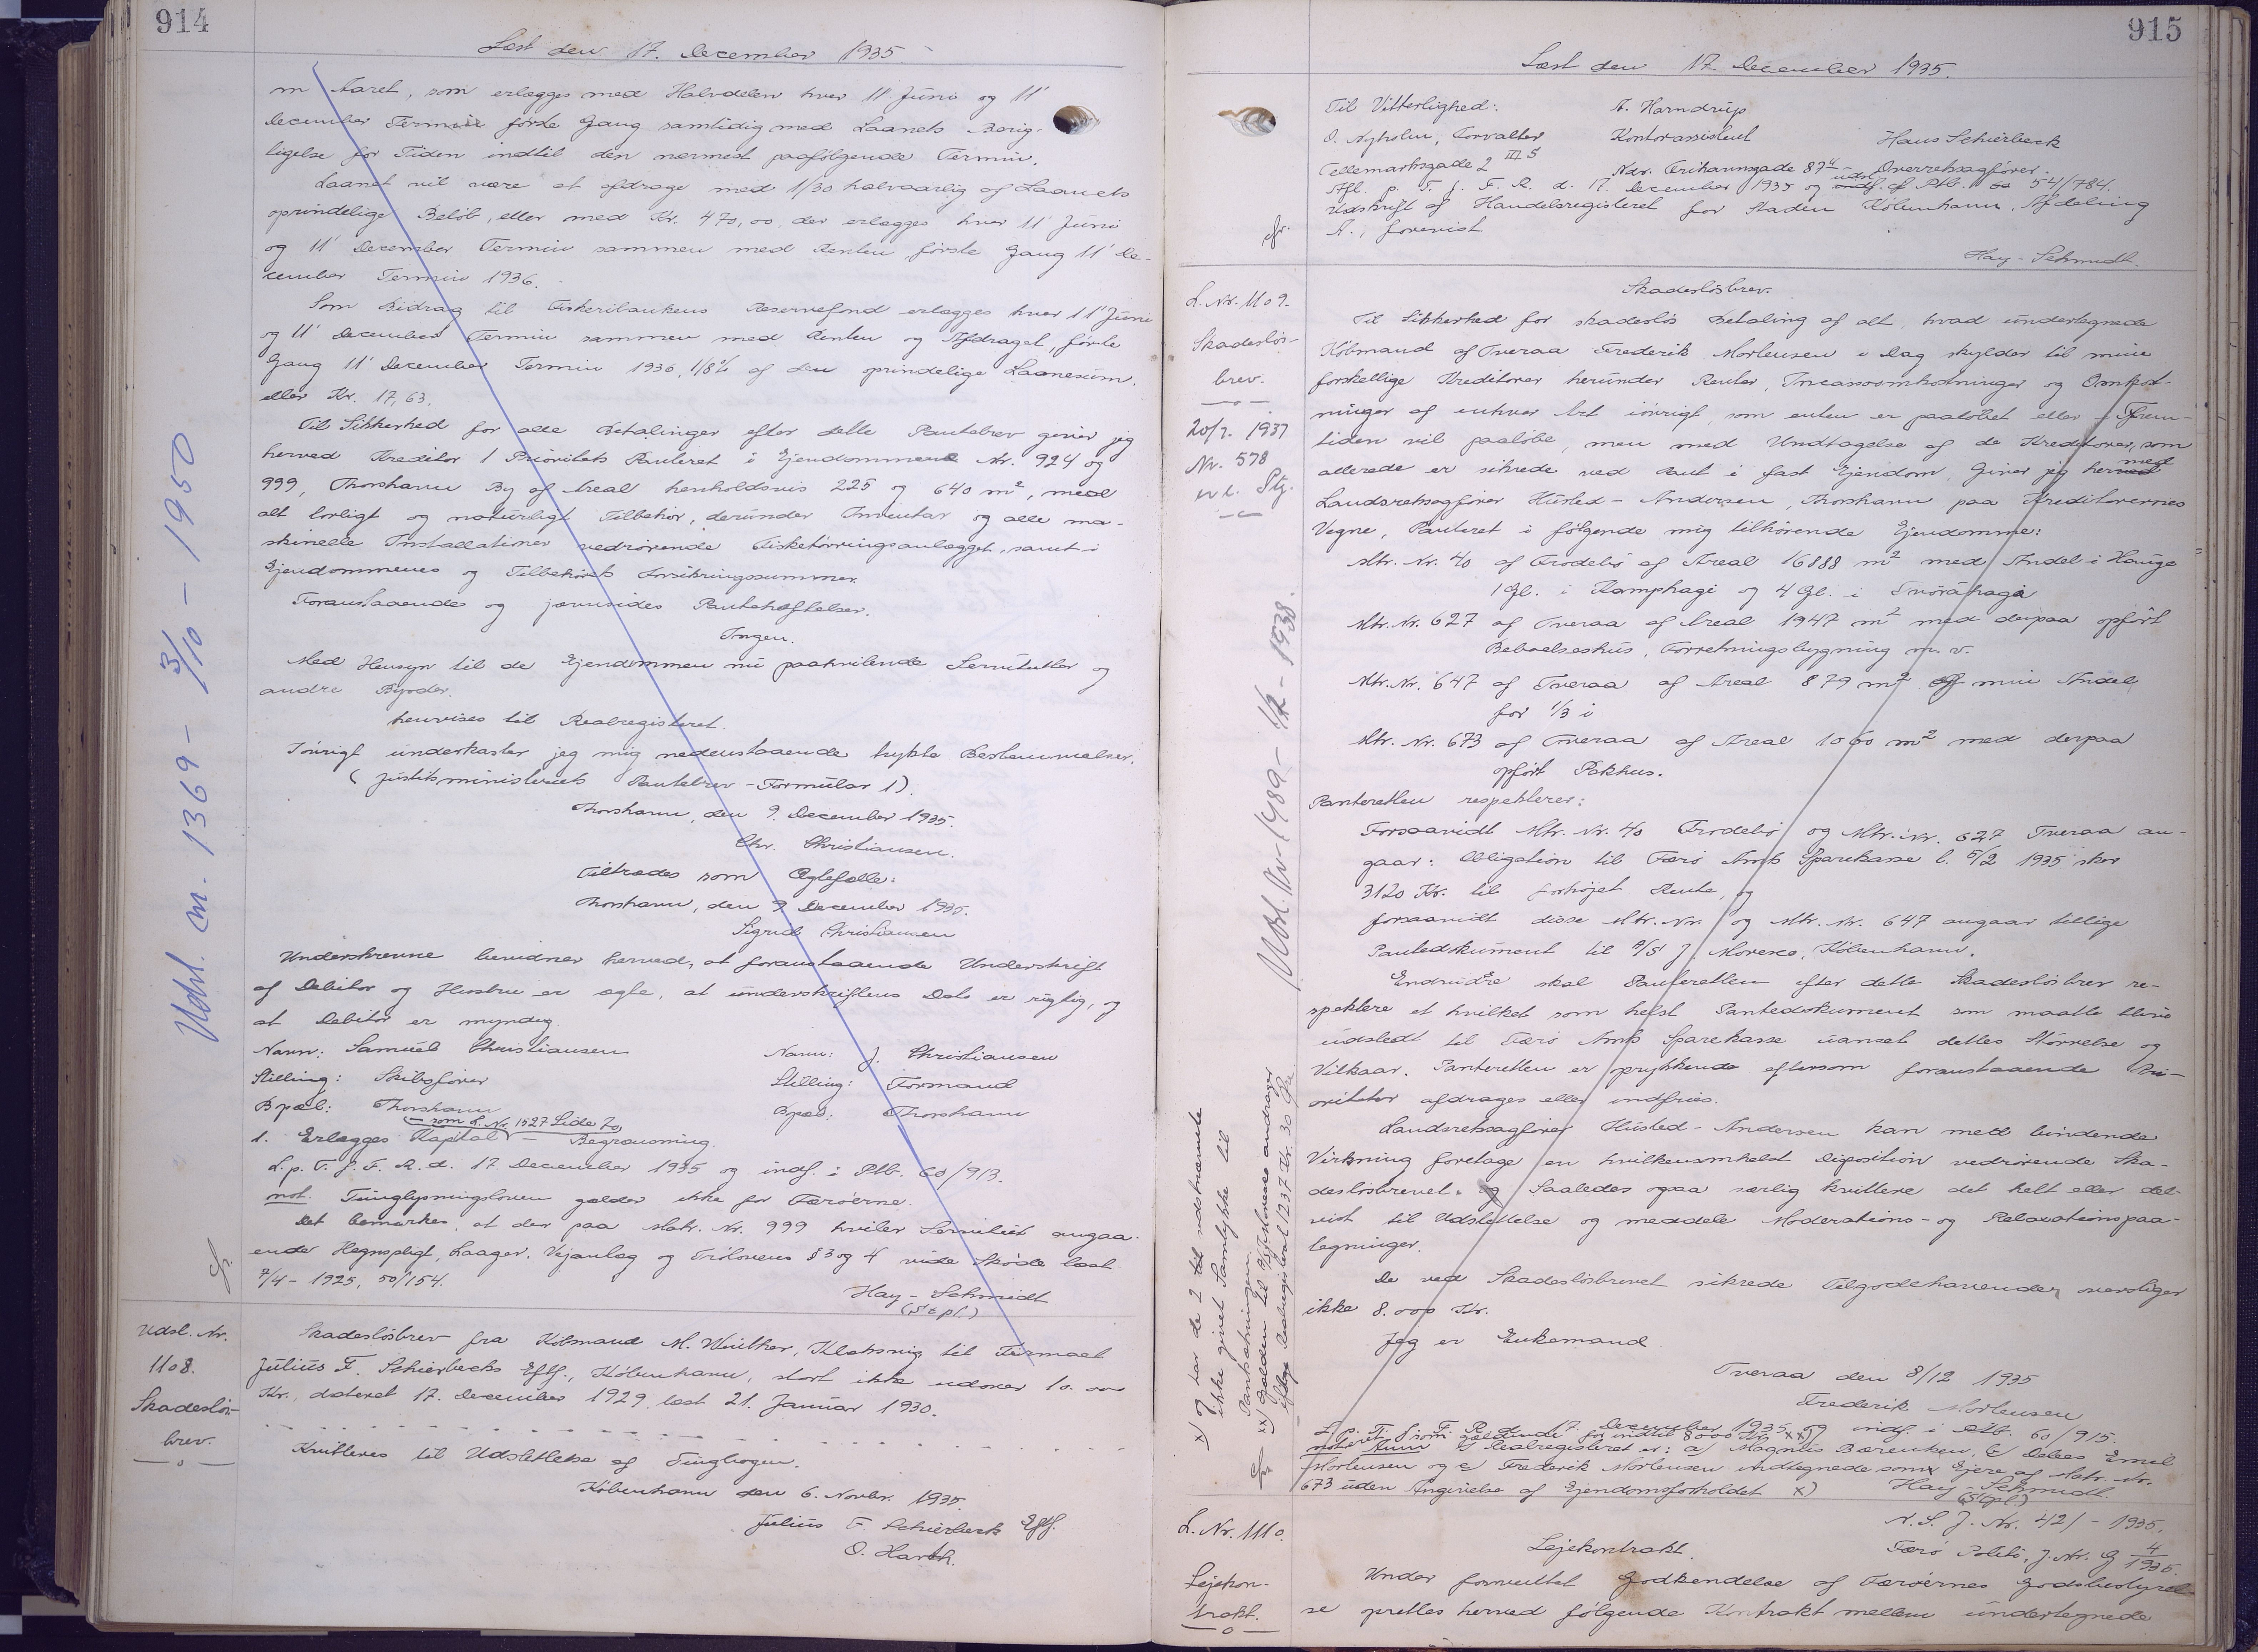 914
Læst den 17. December 1935.
m Aaret, som erlægges med Halvdelen hver 11' Juni og 11'
December Termin første Gang samtidig med Laanets Berig-
tigelse for Tiden indtil den nærmest paafølgende Termin.
Laanet vil være at afdrage med 1/30 halvaarlig af Laanets
oprindelige Beløb, eller med Kr. 470,00, der erlægges hver 11' Juni
og 11' December Termin sammen med Renten, første Gang 11' De-
cember Termin 1936.
Som Bidrag til Fiskeribankens Reservefond erlægges hver 11' Juni
og 11' December Termin sammen med Renten og Afdraget, første
Gang 11' December Termin 1936, 1/8 % af den oprindelige Laanesum,
eller Kr. 17,63.
Til Sikkerhed for alle Betalinger efter dette Pantebrev giver jeg
herved Kreditor 1 Prioritets Panteret i Ejendommene Nr. 924 og
999, Thorshavn By af Areal henholdsvis 225 og 640 m², med
alt lovligt og naturligt Tilbehør, derunder Inventar og alle ma-
skinelle Installationer vedrørende Fisketørringsanlægget, samt i
Ejendommenes og Tilbehørets Forsikringssummer.
Foranstaaende og jævnsides Pantehæftelser.
Ingen.
Med Hensyn til de Ejendommen nu paahvilende Servitutter og
andre Byrder.
henvises til Realregisteret.
Iøvrigt underkaster jeg mig nedenstaaende trykte Bestemmelser.
(Justitsministeriets Pantebrev - Formular 1).
Thorshavn, den 9. December 1935.
Chr. Christiansen.
Tiltrædes som Ægtefælle:
Thorshavn, den 9 December 1935.
Sigrid Christiansen
Underskrevne bevidner herved, at foranstaaende Underskrift
af Debitor og Hustru er ægte, at underskriftens Dato er rigtig, og
at Debitor er myndig.
Navn: Samuel Christiansen Navn: J. Christiansen
Stilling: Skibsfører Stilling: Formand
Bopæl: Thorshavn Bopæl: Thorshavn
— som L. Nr. 1527 Side 70
1. Erlægges Kapital — Begrænsning.
L. p. T. f. F. R. d. 17 December 1935 og indf. i Ptb. 60/913.
not. Tinglysningsloven gælder ikke for Færøerne.
Det bemærkes, at der paa Matr. Nr. 999 hviler Servitut angaa-
ende Hegnspligt, Laager, Vejanlæg og §3 og 4 vide Skøde læst
7/4 - 1925, 50/154.
Hay-Schmidt
(Stpl.)
Udsl. Nr. 1369 - 3/10 - 1950
Udsl. Nr.
1108.
Skadesløs-
brev.
Skadesløsbrev fra Købmand M. Winther, Klaksvig til Firmaet
Julius F. Schierbecks Eftf., København, stort ikke udover 10.000
Kr., dateret 17. December 1929, læst 21. Januar 1930.
Kvitteres til Udslettelse af Tingbogen.
København den 6. Novbr. 1935.
Julius F. Schierbeck Eftf.
O. Harth.
915
Læst den 17. December 1935.
Til Vitterlighed: A. Harndrup
O. Nyholm, Forvalter Kontorassistent Hans Schierbeck
Tellemarksgade 2 III S Ndr. Frihavnsgade 87 4 - Overretssagfører.
Afl. p. T. f. F. R. d. 17. December 1935 og udsl. af Ptb. 54/784.
Udskrift af Handelsregisteret for Staden København, Afdeling
A., forevist
Hay-Schmidt.
L. Nr. 1109.
Skadesløs-
brev.
20/7. 1937
Nr. 578
Skadesløsbrev.
Til Sikkerhed for skadesløs Betaling af alt, hvad undertegnede
Købmand af Tveraa Frederik Mortensen i Dag skylder til mine
forskellige Kreditorer herunder Renter, Incassoomkostninger og Omkost-
ninger af enhver Art iøvrigt, som enten er paaløbet eller i Frem-
tiden vil paaløbe, men med Undtagelse af de Kreditorer, som
allerede er sikrede ved Pant i fast Ejendom, Giver jeg hermed
Landsretssagfører Husted-Andersen, Thorshavn paa Kreditorernes
Vegne, Panteret i følgende mig tilhørende Ejendomme:
Mtr. Nr. 40 af Frodebø af Areal 16888 m² med Andel i Hauge
1 Gl. i Kamphagi og 4 Gl. i Tvöráhaga
Mtr. Nr. 627 af Tveraa af Areal 1947 m² med derpaa opført
Beboelseshus, Forretningsbygning m. v.
Mtr. Nr. 647 af Tveraa af Areal 879 m² og min Andel
for 1/3 i
Mtr. Nr. 673 af Tveraa af Areal 1060 m² med derpaa
opført Pakhus.
Panteretten respekterer:
Forsaavidt Mtr. Nr. 40 Frodebø og Mtr. Nr. 627 Tveraa an-
gaar: Obligation til Færø Amts Sparekasse l. 5/2 1935 stor
3120 Kr. til forhøjet Rente, og
forsaavidt disse Mtr. Nr. og Mtr. Nr. 647 angaar tillige
Pantedokument til A/S J. Moresco, København.
Endvidre skal Panteretten efter dette Skadesløsbrev re-
spektere et hvilket som helst Pantedokument som maatte blive
udstedt til Færø Amts Sparekasse uanset dettes Størrelse og
Vilkaar. Panteretten er oprykkende eftersom foranstaaende Pri-
oriteter afdrages eller indfries.
Landsretssagfører Husted-Andersen kan med bindende
Virkning foretage en hvilkensomhelst Disposition vedrørende Ska-
desløsbrevet. og Saaledes ogsaa særlig kvittere det helt eller del-
vist til Udslettelse og meddele Moderations- og Relaxationspaa-
tegninger.
De ved Skadesløsbrevet sikrede Tilgodehavender overstiger
ikke 8.000 Kr.
Jeg er Enkemand
Tveraa den 8/12 1935
Frederik Mortensen
L. p. T. f. F. R. d. 17. December 1935 og indf. i Ptb. 60/915.
for indtil 8000 Kr. xx)
Realregisteret er: a) Magnus Bærentsen, b) Emil
Mortensen og c) Frederik Mortensen indtegnede som Ejere af Matr. Nr.
673 uden Angivelse af Ejendomsforholdet x) Hay-Schmidt.
(Stpl.)
Udsl. Nr. 1489 - 1/2 - 1938.
x) og har de 2 sidstnævnte
ikke givet Samtykke til
Pantsætningen.
xx) Gælden til andrager
ifølge Realregisteret 1237 Kr. 30 Øre
L. Nr. 1110.
Lejekon-
trakt.
N. S. J. Nr. 421 - 1935.
Lejekontrakt. Færø Politi, J. Nr. G 4/1935.
Under forventet Godkendelse af Færøernes Godsbestyrel-
se oprettes herved følgende Kontrakt mellem undertegnede